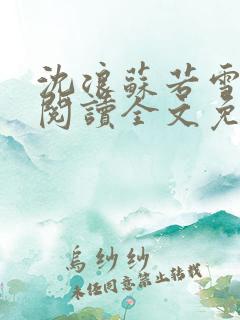 沈浪蘇若雪
閱讀全文免
烏紗紗
未經同意禁止轉載